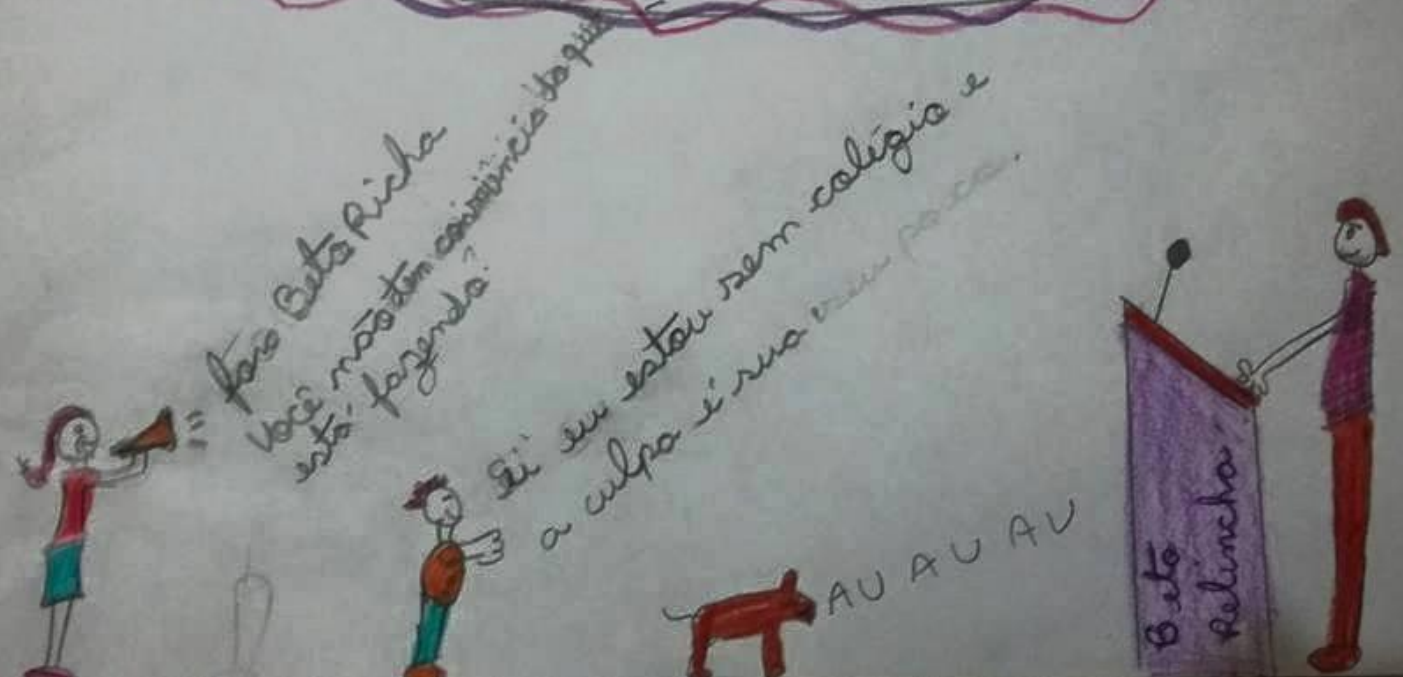 Fora Beto Richa
Você não tem consciência do que
está fazendo?
Ei eu estou sem colégio e
a culpa é sua seu
AU AU AU
Beto
Relincha